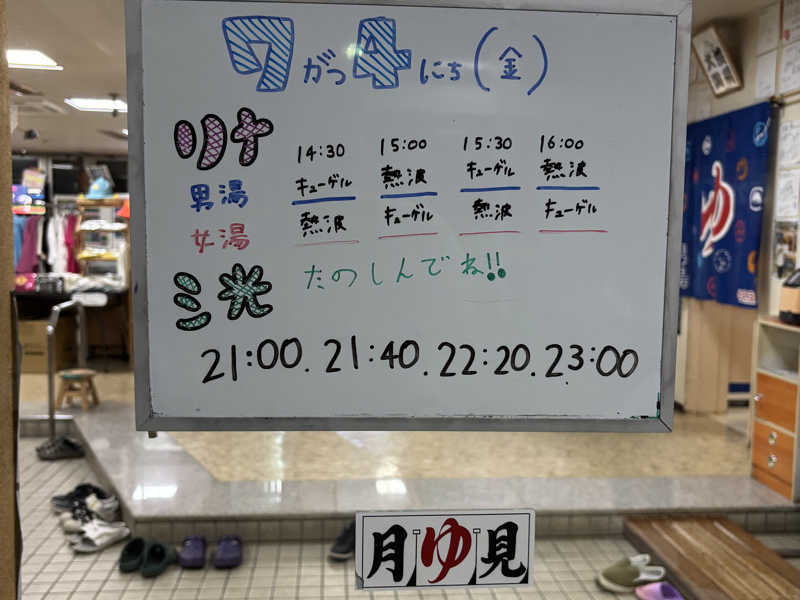 7がつ4にち(金)
リナ
14:30 15:00 15:30 16:00
男湯 キューゲル 熱波 キューゲル 熱波
女湯 熱波 キューゲル 熱波 キューゲル
ミ光 たのしんでね!!
21:00. 21:40. 22:20. 23:00
ゆ
月ゆ見